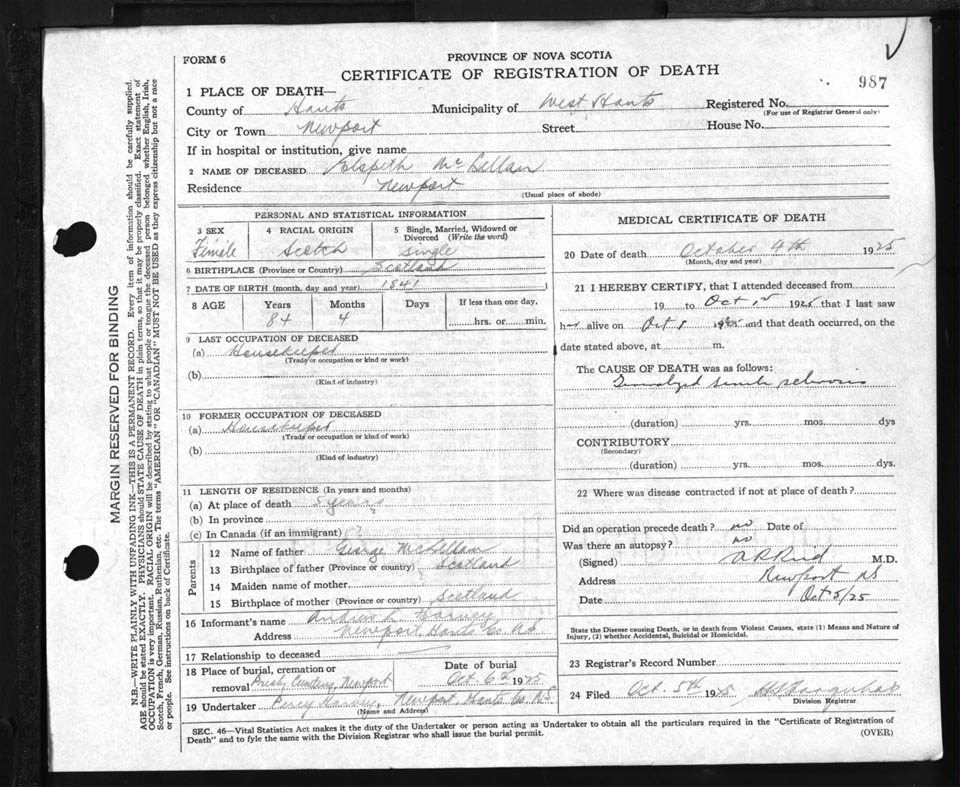 FORM 6
PROVINCE OF NOVA SCOTIA
CERTIFICATE OF REGISTRATION OF DEATH
987
1 PLACE OF DEATH—
County of Hants Municipality of West Hants Registered No.
(For use of Registrar General only)
City or Town Newport Street House No.
If in hospital or institution, give name
2 NAME OF DECEASED Elspeth McLellan
Residence Newport
(Usual place of abode)
PERSONAL AND STATISTICAL INFORMATION
3 SEX 4 RACIAL ORIGIN 5 Single, Married, Widowed or Divorced (Write the word)
Female Scotch Single
6 BIRTHPLACE (Province or Country) Scotland
7 DATE OF BIRTH (month, day and year) 1841
8 AGE Years Months Days If less than one day,
84 4 hrs. or min.
9 LAST OCCUPATION OF DECEASED
(a) Housekeeper
(Trade or occupation or kind or work)
(b)
(Kind of industry)
10 FORMER OCCUPATION OF DECEASED
(a) Housekeeper
(Trade or occupation or kind of work)
(b)
(Kind of industry)
11 LENGTH OF RESIDENCE (In years and months)
(a) At place of death 5 years
(b) In province
(c) In Canada (if an immigrant) ?
Parents
12 Name of father George McLellan
13 Birthplace of father (Province or country) Scotland
14 Maiden name of mother
15 Birthplace of mother (Province or country) Scotland
16 Informant's name Andrew L Harvey
Address Newport Hants Co. N.S
17 Relationship to deceased
18 Place of burial, cremation or removal Presby Cemetery, Newport Date of burial Oct. 6th 1925
19 Undertaker Percy Harvey, Newport, Hants Co. NS
(Name and Address)
MEDICAL CERTIFICATE OF DEATH
20 Date of death October 4th 1925
(Month, day and year)
21 I HEREBY CERTIFY, that I attended deceased from
19 to Oct 1st 1925 that I last saw
her alive on Oct 1 1925 and that death occurred, on the
date stated above, at m.
The CAUSE OF DEATH was as follows:
senile sclerosis
(duration) yrs. mos. dys
CONTRIBUTORY
(Secondary)
(duration) yrs. mos. dys.
22 Where was disease contracted if not at place of death?
Did an operation precede death? no Date of
Was there an autopsy? no
(Signed) A R Reid M.D.
Address Newport NS
Date Oct 5/25
State the Disease causing Death, or in death from Violent Causes, state (1) Means and Nature of
Injury, (2) whether Accidental, Suicidal or Homicidal.
23 Registrar's Record Number
24 Filed Oct. 5th 1925
Division Registrar
SEC. 46—Vital Statistics Act makes it the duty of the Undertaker or person acting as Undertaker to obtain all the particulars required in the "Certificate of Registration of
Death" and to fyle the same with the Division Registrar who shall issue the burial permit.
(OVER)
MARGIN RESERVED FOR BINDING
N.B.—WRITE PLAINLY WITH UNFADING INK—THIS IS A PERMANENT RECORD. Every item of information should be carefully supplied.
AGE should be stated EXACTLY. PHYSICIANS should STATE CAUSE OF DEATH in plain terms, so that it may be properly classified. Exact statement of
OCCUPATION is very important. RACIAL ORIGIN will be described by stating to what people or tongue the deceased person belonged whether English, Irish,
Scotch, French, German, Russian, Ruthenian, etc. The terms "AMERICAN" OR "CANADIAN" MUST NOT BE USED as they express citizenship but not a race
or people. See instructions on back of Certificate.